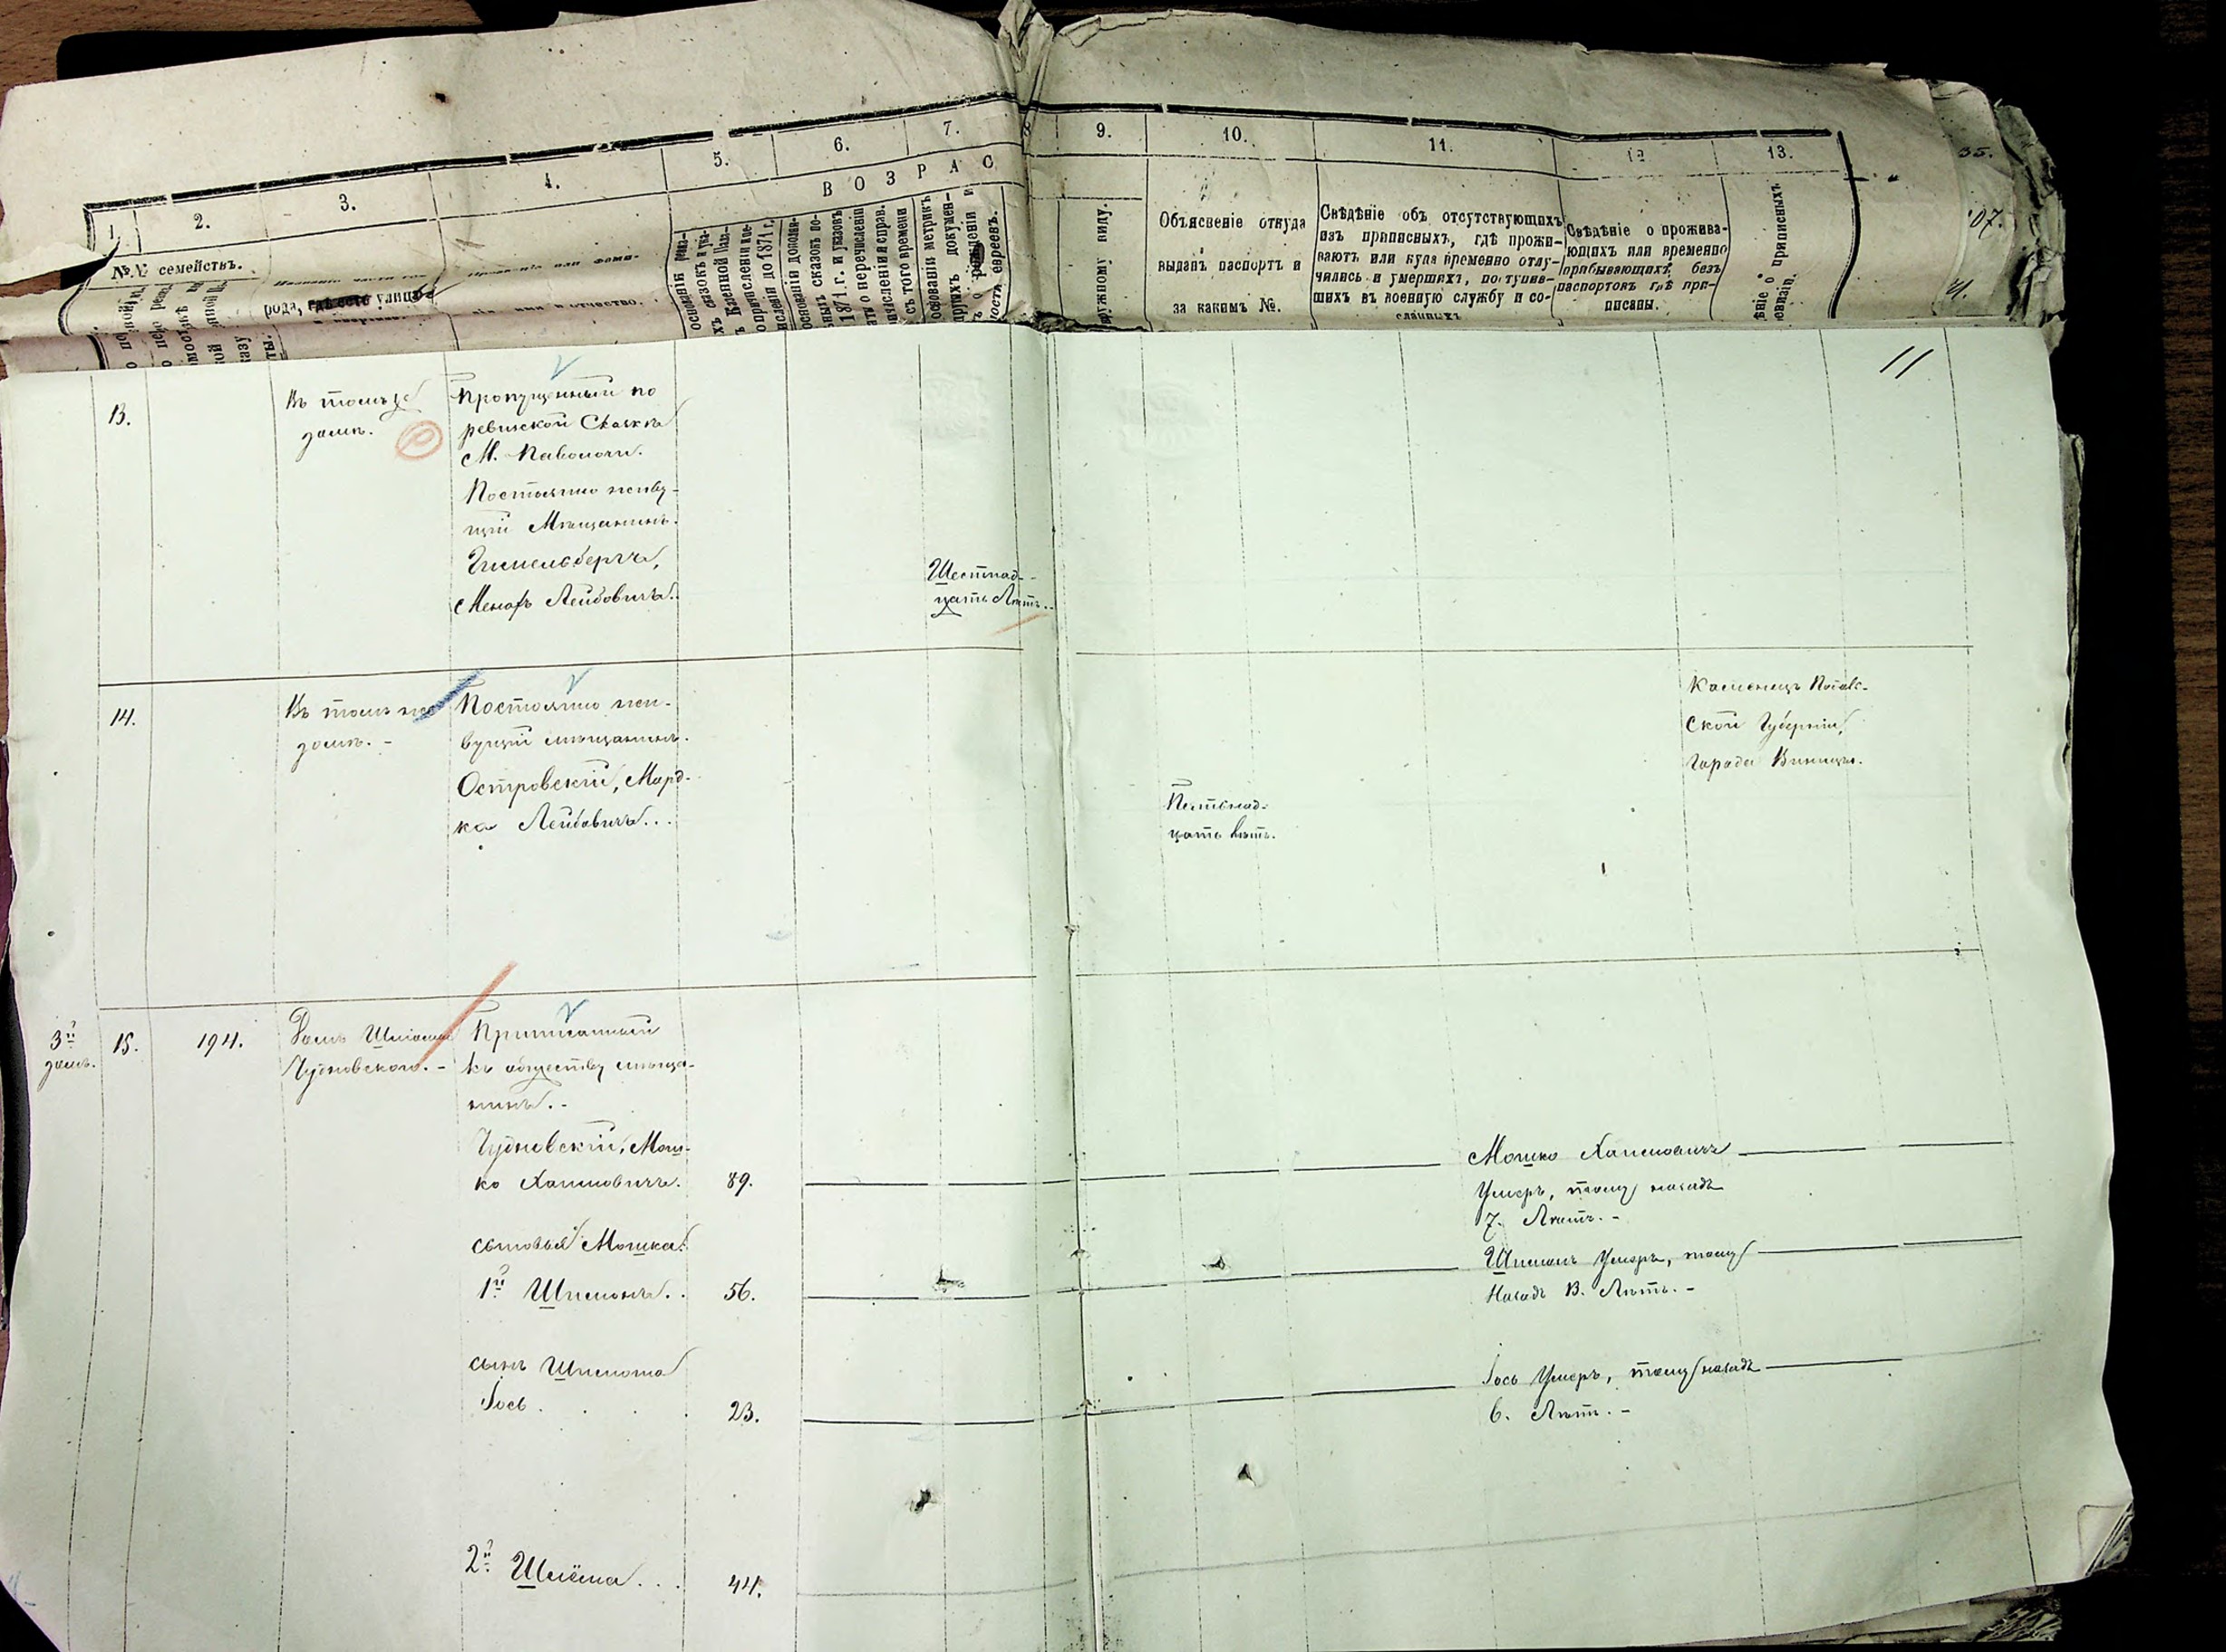 1.
2.
3.
4.
5.
6.
7.
9.
10.
11.
12
13.
35.
В О З Р А С
№№ семействъ.
рода, гдѣ есть улицы
имя и отчество.
ружному виду.
Объясненіе откуда
выданъ паспортъ и
за какимъ №.
Свѣдѣніе объ отсутствующихъ
изъ приписныхъ, гдѣ прожи-
ваютъ или куда временно отлу-
чались и умершихъ, поступив-
шихъ въ военную службу и со-
сланныхъ
Свѣдѣніе о прожива-
ющихъ или временно
прибывающихъ, безъ
паспортовъ гдѣ при-
писаны.
107.
11
13.
Въ томъ же
домѣ.
Пропущенный по
ревизской Сказкѣ
М. Паволочи.
Постоянно живу-
щій Мѣщанинъ.
Гимельбергъ,
Лейбовичъ.
Шестнад-
цать Лѣтъ.
14.
Въ томъ же
домѣ. -
Постоянно жи-
вущій мѣщанинъ.
Островскій, Морд-
ко Лейбовичъ...
Пятьнад-
цать лѣтъ.
Каменецъ Подоль-
ской Губерніи,
Города Виницы.
3й
домъ.
15.
194.
Домъ Шлiомы
Чудновского. -
Приписанный
къ обществу мѣща-
нинъ. -
Чудновскій, Мош-
ко Хаимовичъ.
89.
Мошко Хаимовичъ
Умеръ, тому назадъ
7. Лѣтъ. -
сыновья Мошка:
1й Шимонъ..
56.
Шимонъ Умеръ, тому
Назадъ 13. Лѣтъ. -
сынъ Шимона
Іось.
23.
Іось Умеръ, тому назадъ
6. Лѣтъ. -
2й Шлёма...
44.